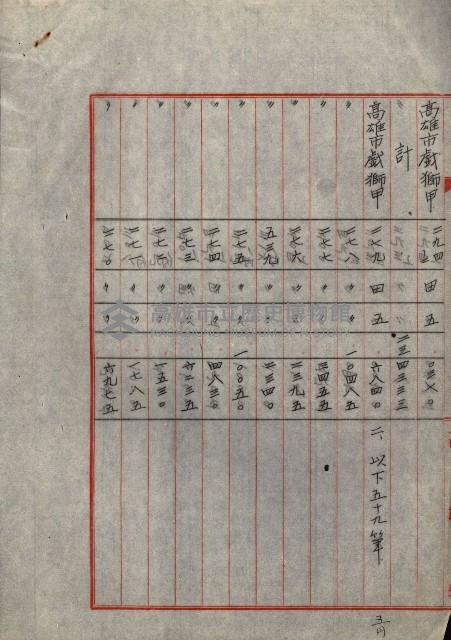 高雄市戲獅甲 二九四 田 五 〇三八〇
計 二三四三三三
高雄市戲獅甲 二八九 田 五 六八四〇 二、以下五十九筆
〃 二八八 〃 〃 一〇四八五
〃 二七七 〃 〃 三四五五
〃 二七六 〃 〃 二三九五
〃 五三九 〃 〃 二三四〇
〃 二七五 〃 〃 一〇〇五〇
〃 二七四 〃 〃 四八三〇
〃 二七三 〃 〃 六二三五
〃 二七二 〃 〃 一五三〇
〃 二七一 〃 〃 一七八五
〃 二七〇 〃 〃 六九七五
高雄市立歷史博物館